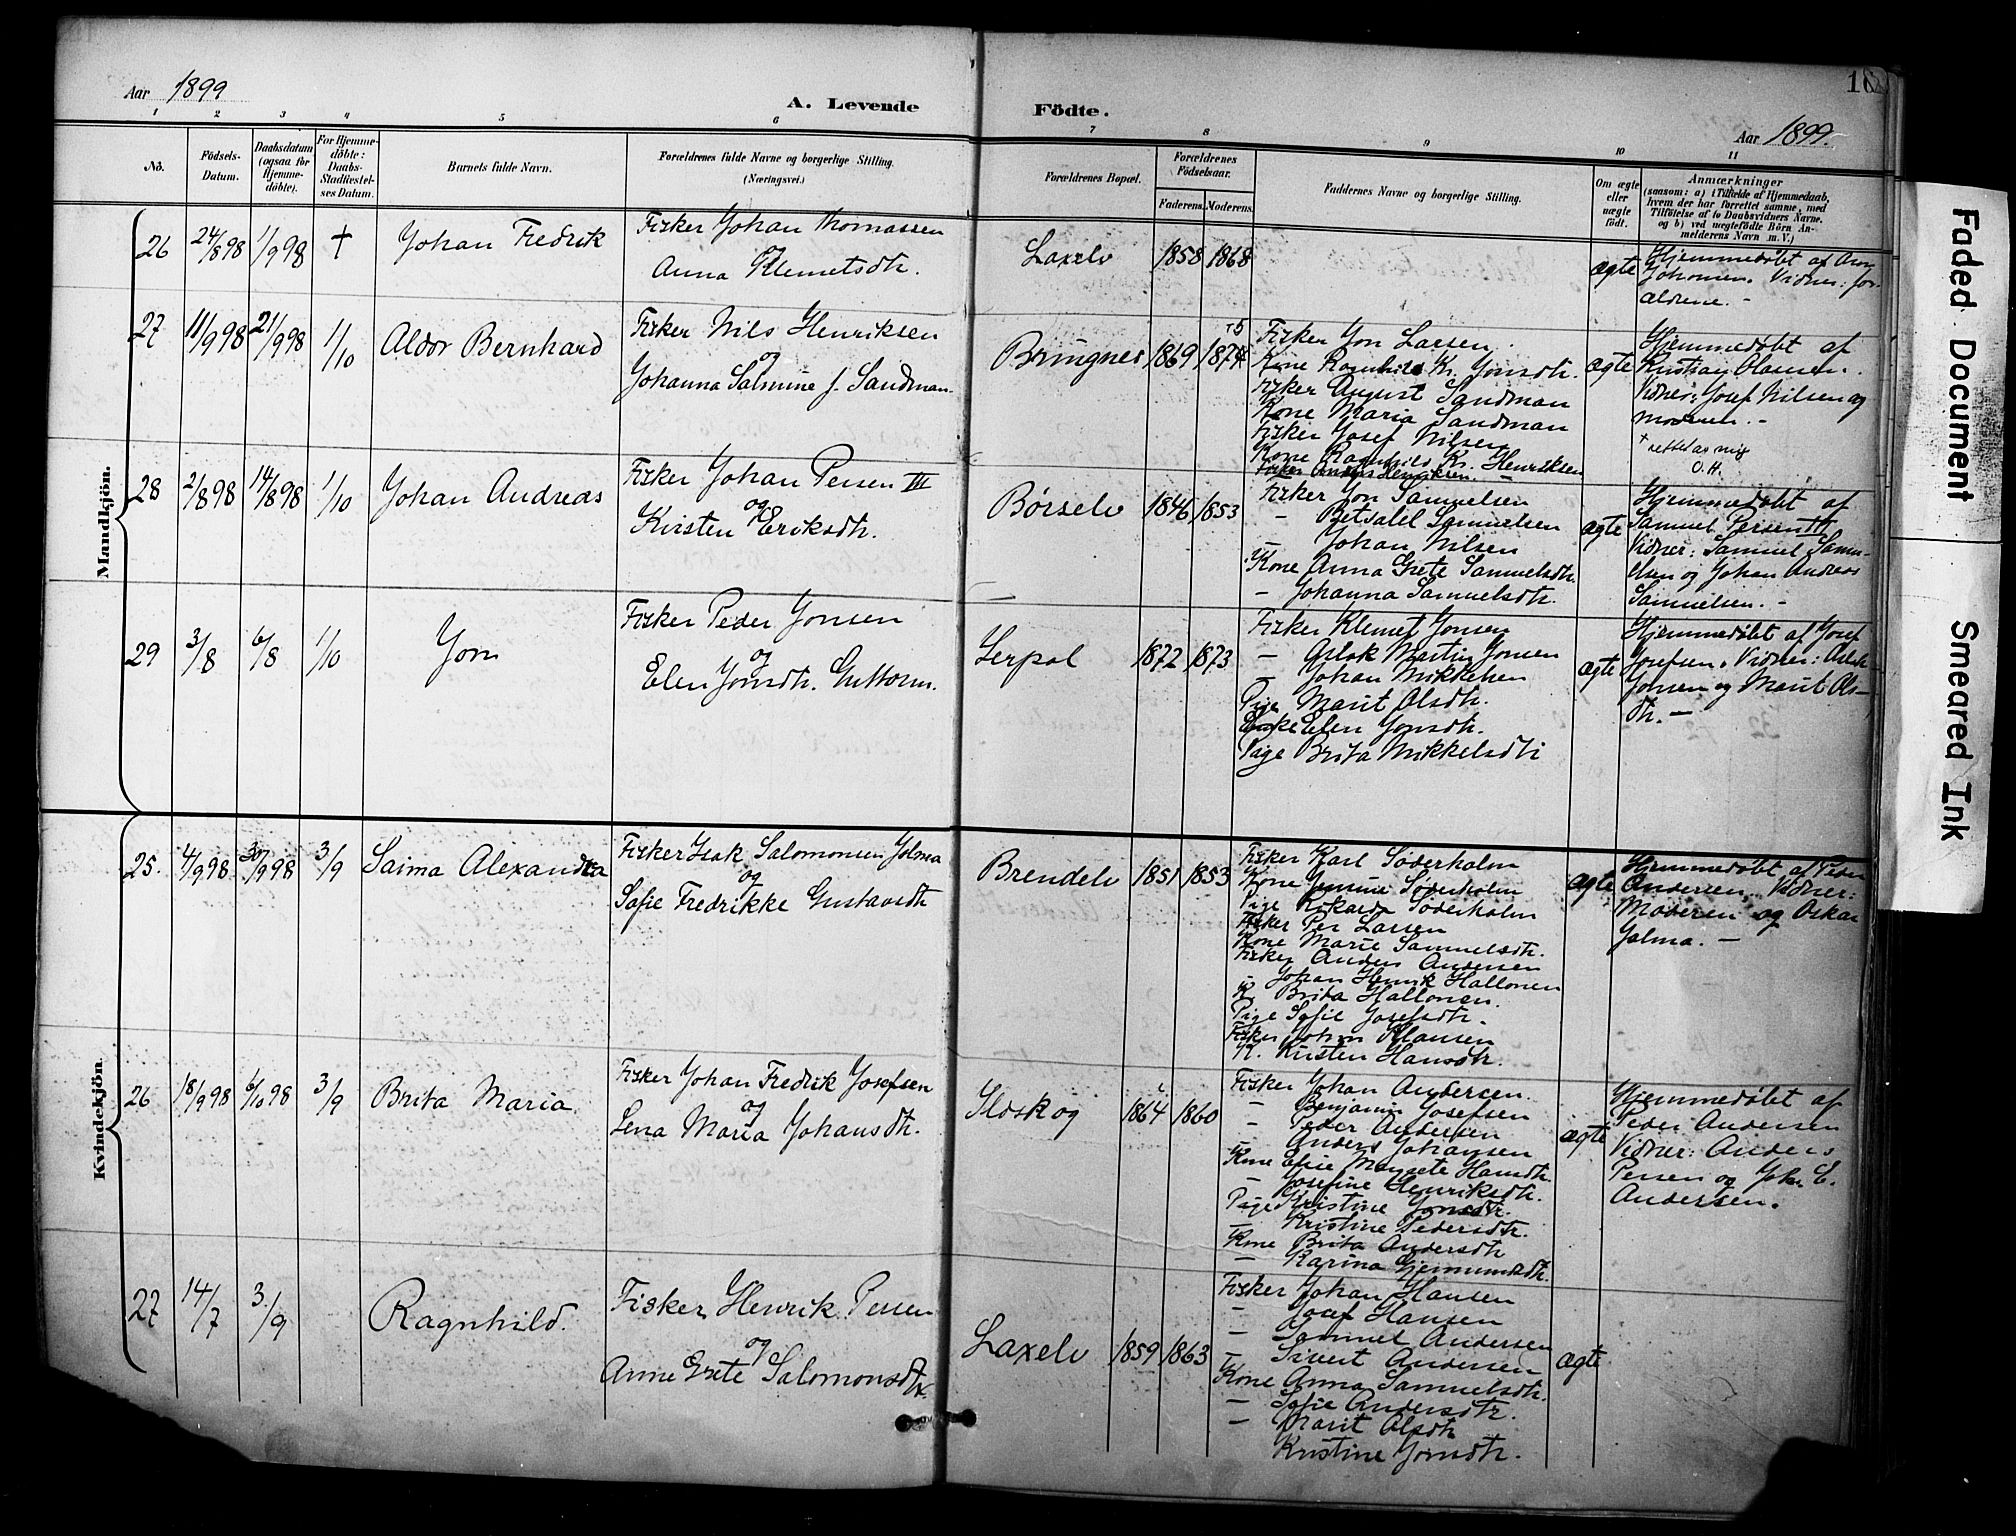 Aar 1899
A. Levende
Födte.
Aar 1899.
1 2 3 4 5 6 7 8 9 10 11
No.
Födsels-
Datum.
Daabsdatum
(ogsaa for
Hjemme-
döbte).
For Hjemme-
döbte:
Daabs-
Stadfæstel-
ses Datum.
Barnets fulde Navn.
Forældrenes fulde Navne og borgerlige Stilling.
(Næringsvei.)
Forældrenes Bopæl.
Forældrenes
Födselsaar.
Faderens. Moderens.
Faddernes Navne og borgerlige Stilling.
Om ægte
eller
uægte
födt.
Anmærkninger
(saasom: a) i Tilfælde af Hjemmedaab,
hvem der har forrettet samme, med
Tilföielse af to Daabsvidners Navne,
og b) ved uægtefödte Börn An-
melderens Navn m. V.)
Mandkjön.
26 24/8 98 1/9 98 † Johan Fredrik
Fisker Johan Thomassen
og
Anna Klemetsdtr.
Laxelv 1858 1868
ægte
Hjemmedøbt af
Johannes. Vidner: for-
ældrene. -
27 11/9 98 21/9 98 1/10 Aldor Bernhard
Fisker Nils Henriksen
og
Johanna Salmine f. Sandman.
Bringnes 1869 1874 +5
Fisker Jon Larsen.
Kone Ragnhild K. Jonsdtr.
Fisker August Sandman
Kone Maria Sandman
Fisker Josef Nilsen
Kone Ragnhild Kr. Henriksen
Fisker Anders Henriksen. -
ægte
Hjemmedøbt af
Kristian Olausen.
Vidner: Josef Nilsen og
moderen. -
+ rettet av mig
O.H.
28 2/8 98 14/8 98 1/10 Johan Andreas
Fisker Johan Persen III
og
Kirsten Eriksdtr.
Børselv 1846 1853
Fisker Jon Samuelsen
- Betsalel Samuelsen
- Johan Nilsen
Kone Anna Grete Samuelsdtr.
- Johanna Samuelsdtr.
ægte
Hjemmedøbt af
Samuel Persen III
Vidner: Samuel Samu-
elsen og Johan Andreas
Samuelsen. -
29 3/8 6/8 1/10 Jon
Fisker Peder Jonsen
og
Elen Jonsdtr. Guttorm.
Lerpol 1872 1873
Fisker Klemet Jonsen
- Aslak Martin Jonsen
- Johan Mikkelsen
Pige Marit Olsdtr.
Enke Elen Jonsdtr.
Pige Brita Mikkelsdtr
ægte
Hjemmedøbt af Josef
Josefsen. Vidner: Aslak
Jonsen og Marit Ols-
dtr. -
Kvindekjön
25. 4/9 98 30/9 98 3/9 Saima Alexandra
Fisker Isak Salomonsen Jolma
og
Sofie Fredrikke Gustavsdtr
Brendelv 1851 1853
Fisker Karl Søderholm
Kone Jensine Søderholm
Pige Rikarda Søderholm
Fisker Per Larsen
Kone Marie Sammelsdtr.
Fisker Anders Andersen
Johan Henrik Hallonen
K. Brita Hallonen.
Pige Sofie Josefsdtr.
Fisker Johan Klausen
K. Kristen Hansdtr.
ægte
Hjemmedøbt af Peder
Andersen. Vidner:
Moderen og Oskar
Jolma. -
26 18/9 98 6/10 98 3/9 Brita Maria
Fisker Johan Fredrik Josefsen
og
Lena Maria Johansdtr.
Ildskog 1864 1860
Fisker Johan Andersen.
- Benjamin Josefsen
- Peder Andersen
- Anders Johansen
Kone Sofie Margrete Hansdtr.
- Josefine Henriksdtr.
Pige Kristine Jonsdtr.
- Kristine Pedersdtr.
Kone Brita Andersdtr
- Karina Gjermundsdtr.
ægte
Hjemmedøbt af
Peder Andersen
Vidner: Anders
Persen og Joh. E.
Andersen.
27 14/7 3/9 Ragnhild.
Fisker Henrik Persen
og
Anne Grete Salomonsdtr.
Laxelv 1859 1863
Fisker Johan Hansen
- Josef Hansen
- Samuel Andersen
- Sivert Andersen
Kone Anna Samuelsdtr.
- Sofie Andersdtr.
- Marit Olsdtr
Kristine Jonsdtr.
ægte
Faded Document
Smeared Ink